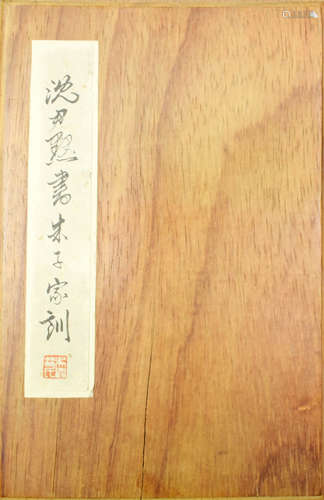 沈尹默書朱子家訓